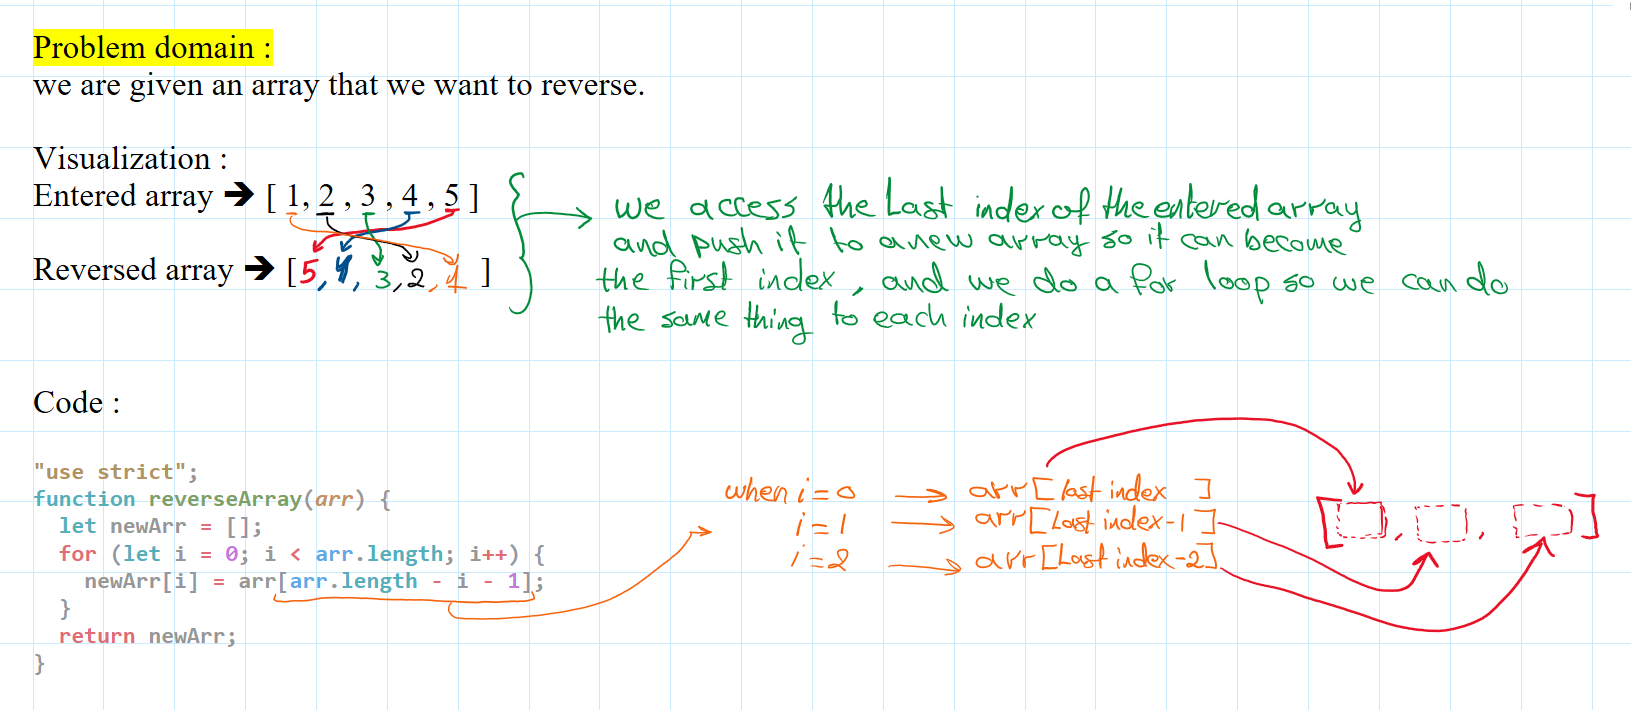 Problem domain :
we are given an array that we want to reverse.
Visualization :
Entered array ➔ [ 1, 2 , 3 , 4 , 5 ]
Reversed array ➔ [5, 4, 3, 2, 1 ]
we access the Last index of the entered array
and push it to a new array so it can become
the first index , and we do a for loop so we can do
the same thing to each index
Code :
"use strict";
function reverseArray(arr) {
let newArr = [];
for (let i = 0; i < arr.length; i++) {
newArr[i] = arr[arr.length - i - 1];
}
return newArr;
}
when i=0 → arr[last index ]
i=1 → arr[Last index-1]
i=2 → arr[Last index-2]
[ , , ]